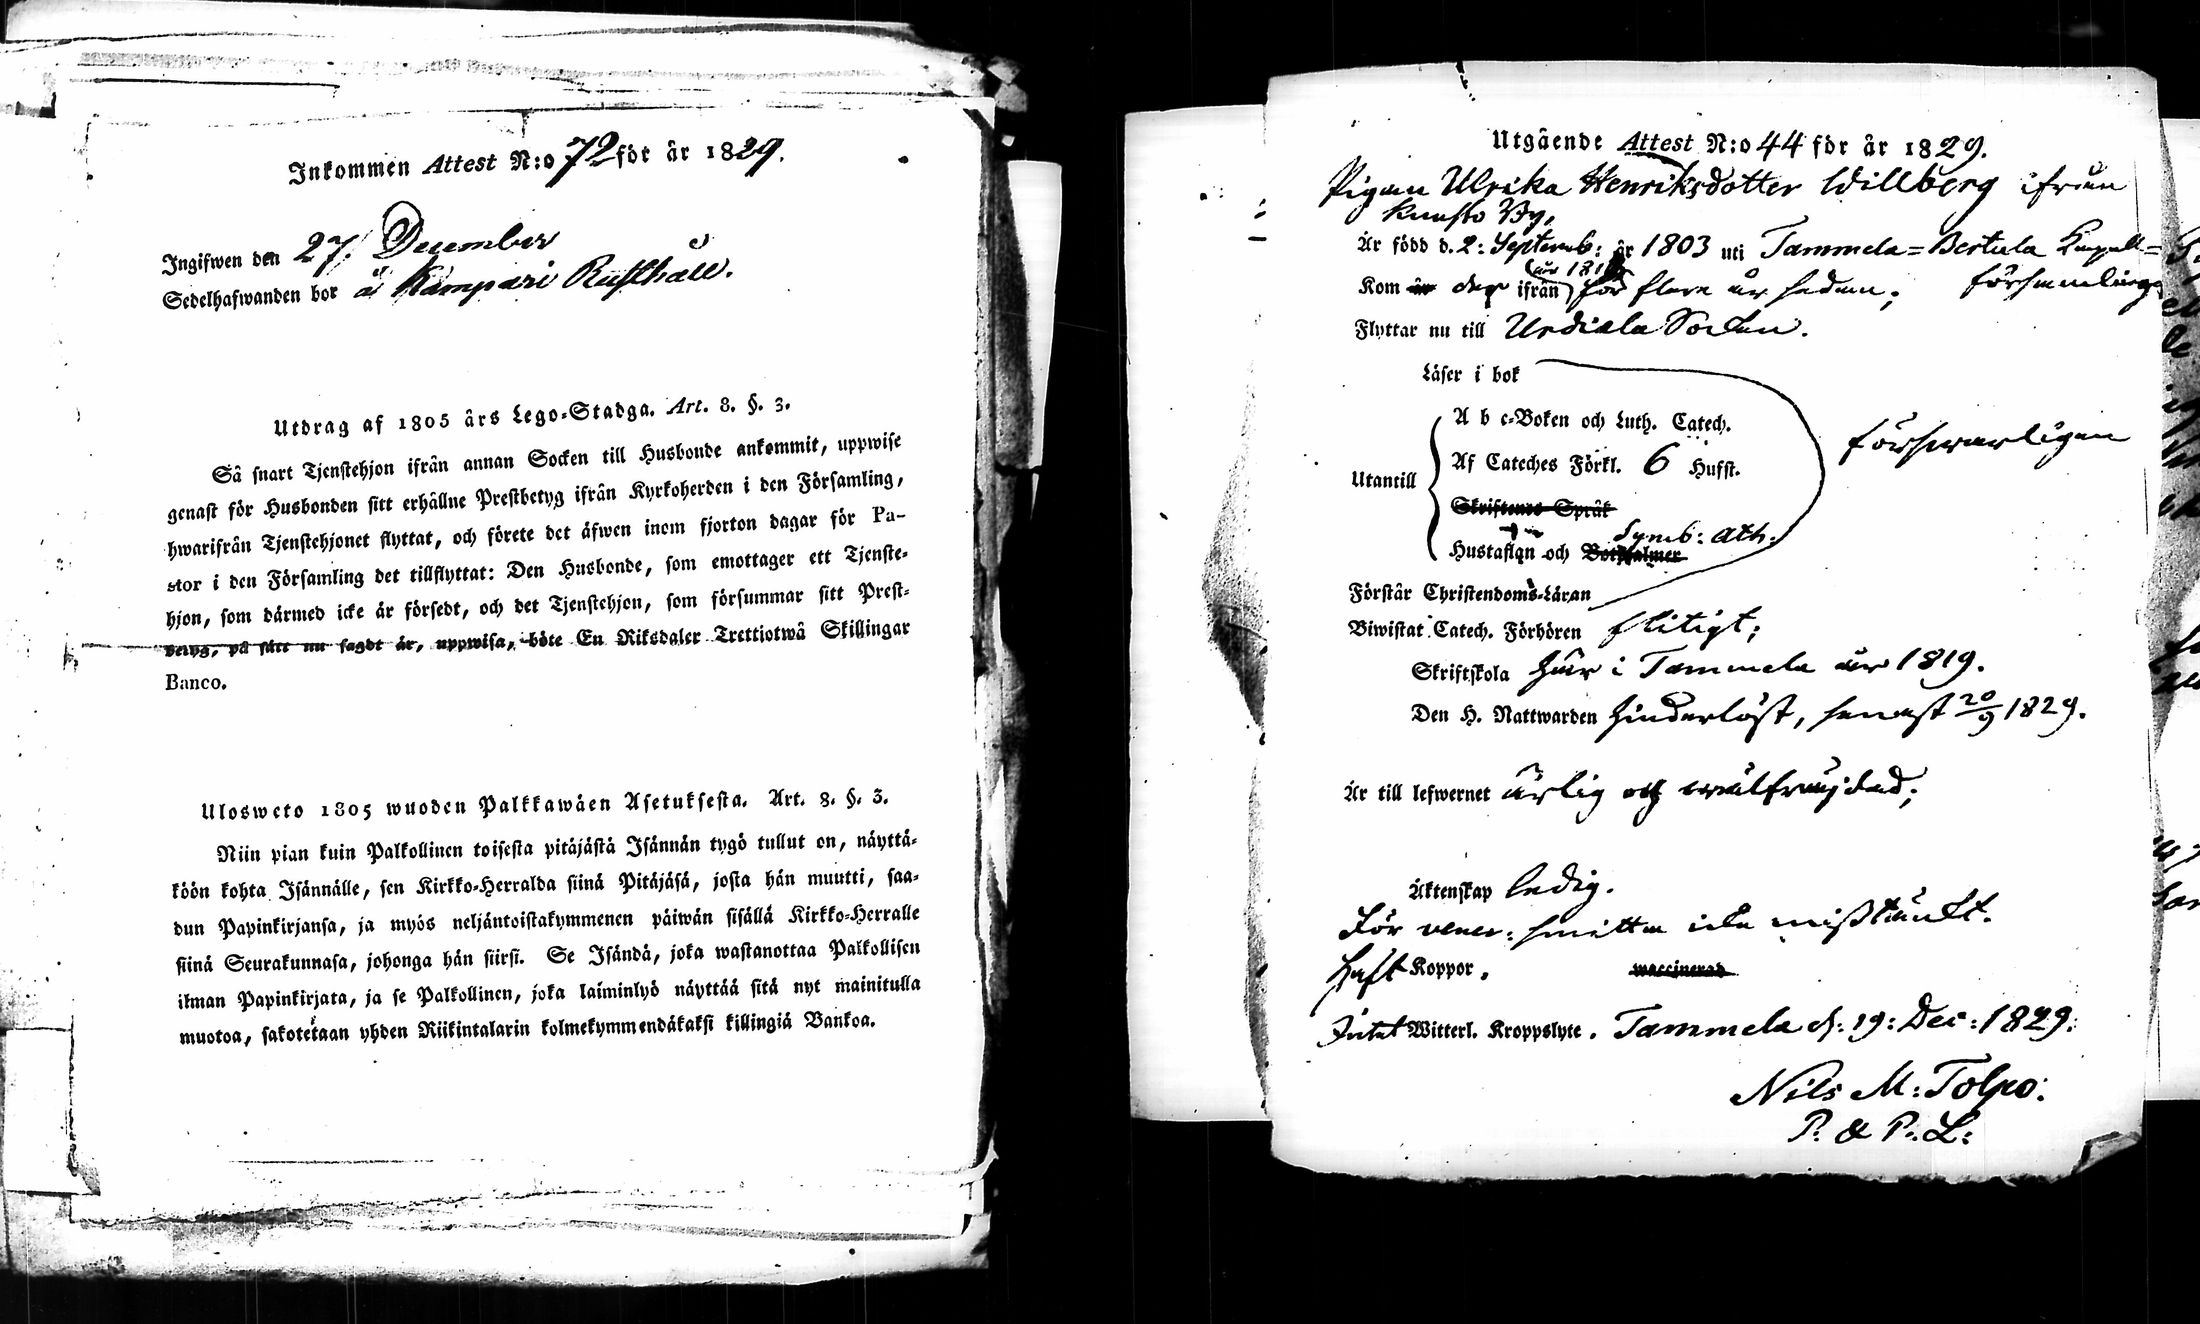 Inkommen Attest N:o 72 för år 1829.
Ingifwen den 27. December
Sedelhafwanden bor å Kampari Rusthåll.
Utdrag af 1805 års Lego-Stadga. Art. 8. §. 3.
Så snart Tjenstehjon ifrån annan Socken till Husbonde ankommit, uppwise
genast för Husbonden sitt erhållne Prestbetyg ifrån Kyrkoherden i den Församling,
hwarifrån Tjenstehjonet flyttat, och förete det äfwen inom fjorton dagar för Pa-
stor i den Församling det tillflyttat: Den Husbonde, som emottager ett Tjenste-
hjon, som därmed icke är försedt, och det Tjenstehjon, som försummar sitt Prest-
betyg, på sätt nu sagdt är, uppwisa, böte En Riksdaler Trettiotwå Skillingar
Banco.
Ulosweto 1805 wuoden Palkkawäen Asetuksesta. Art. 8. §. 3.
Niin pian kuin Palkollinen toisesta pitäjästä Isännän tygö tullut on, näyttä-
köön kohta Isännälle, sen Kirkko-Herralda siinä Pitäjäsä, josta hän muutti, saa-
dun Papinkirjansa, ja myös neljäntoistakymmenen päiwän sisällä Kirkko-Herralle
siinä Seurakunnasa, johonga hän siirsi. Se Isändä, joka wastanottaa Palkollisen
ilman Papinkirjata, ja se Palkollinen, joka laiminlyö näyttää sitä nyt mainitulla
muotoa, sakotetaan yhden Riikintalarin kolmekymmendäkaksi killingiä Bankoa.
Utgående Attest N:o 44 för år 1829.
Pigan Ulrika Henriksdotter Willberg ifrån
Kuusto By,
Är född d. 2: Septemb: år 1803 uti Tammela=Bertula Kapell=
församling
Kom år der ifrån för flere år sedan;
Flyttar nu till Urdiala Socken.
Läser i bok
A b c-Boken och Luth. Catech.
Utantill Af Cateches Förkl. 6 Hufst. försvarligen
Skriftenes Språk
Symb: Ath.
Hustaflan och Botpsalmer
Förstår Christendoms-Läran
Biwistat Catech. Förhören flitigt;
Skriftskola här i Tammela år 1819.
Den H. Nattwarden hinderlöst, senast 20/9 1829.
Är till lefwernet ärlig och wälfräjdad;
Äktenskap ledig.
För vener: smitta icke misstänkt.
Haft Koppor. waccinerad
Intet Witterl. Kroppslyte. Tammela d: 19: Dec: 1829:
Nils M: Tolpo:
P. & P. L: